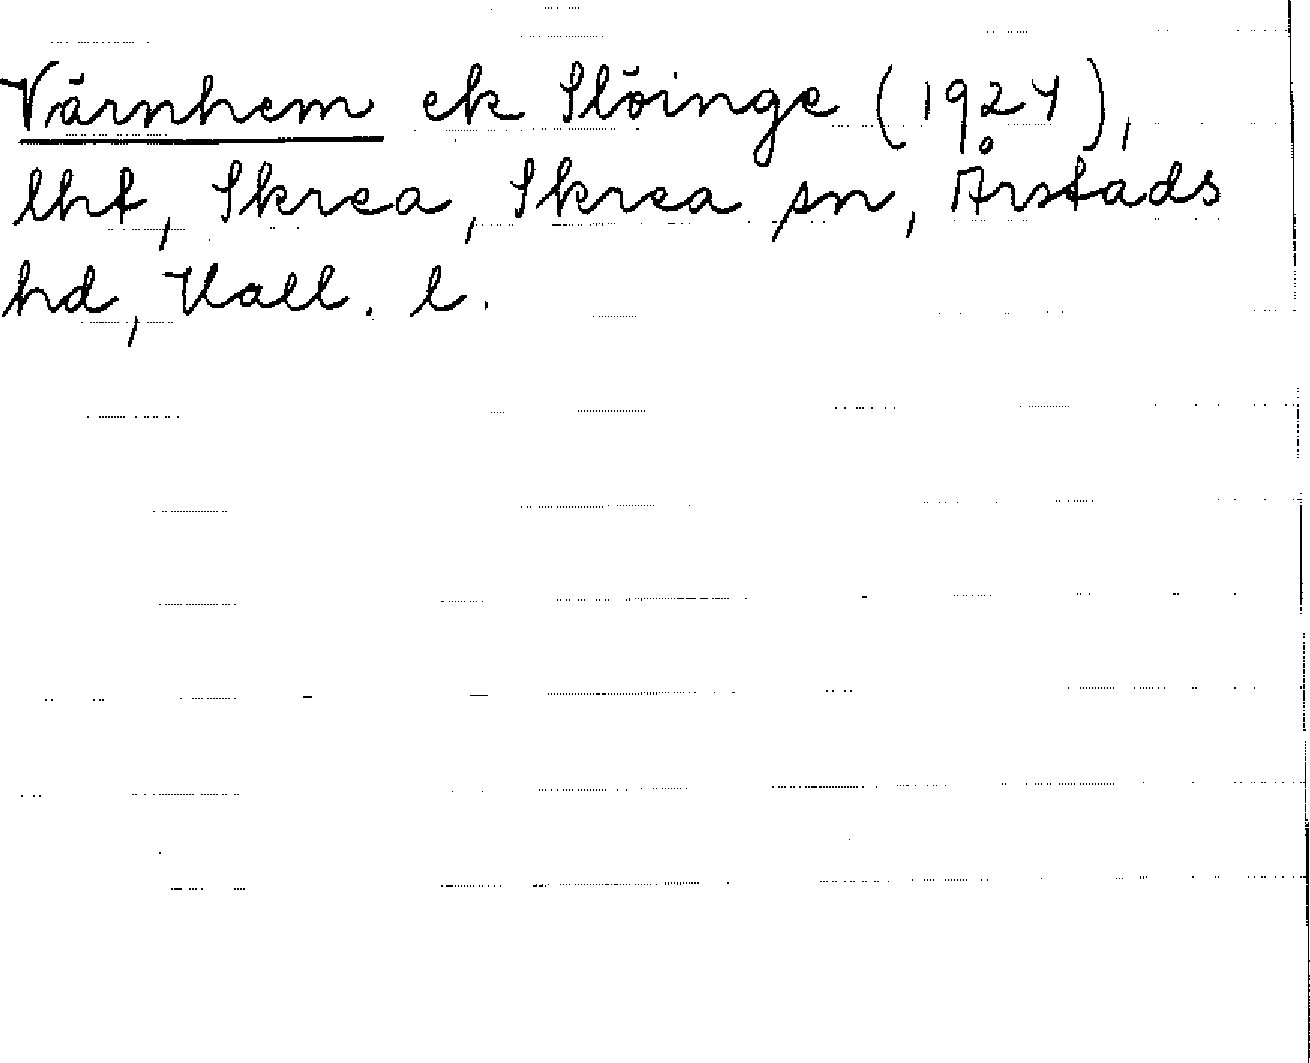 Värnhem ek Slöinge (1924),
lht, Skrea, Skrea sn, Årstads
hd, Hall. l.